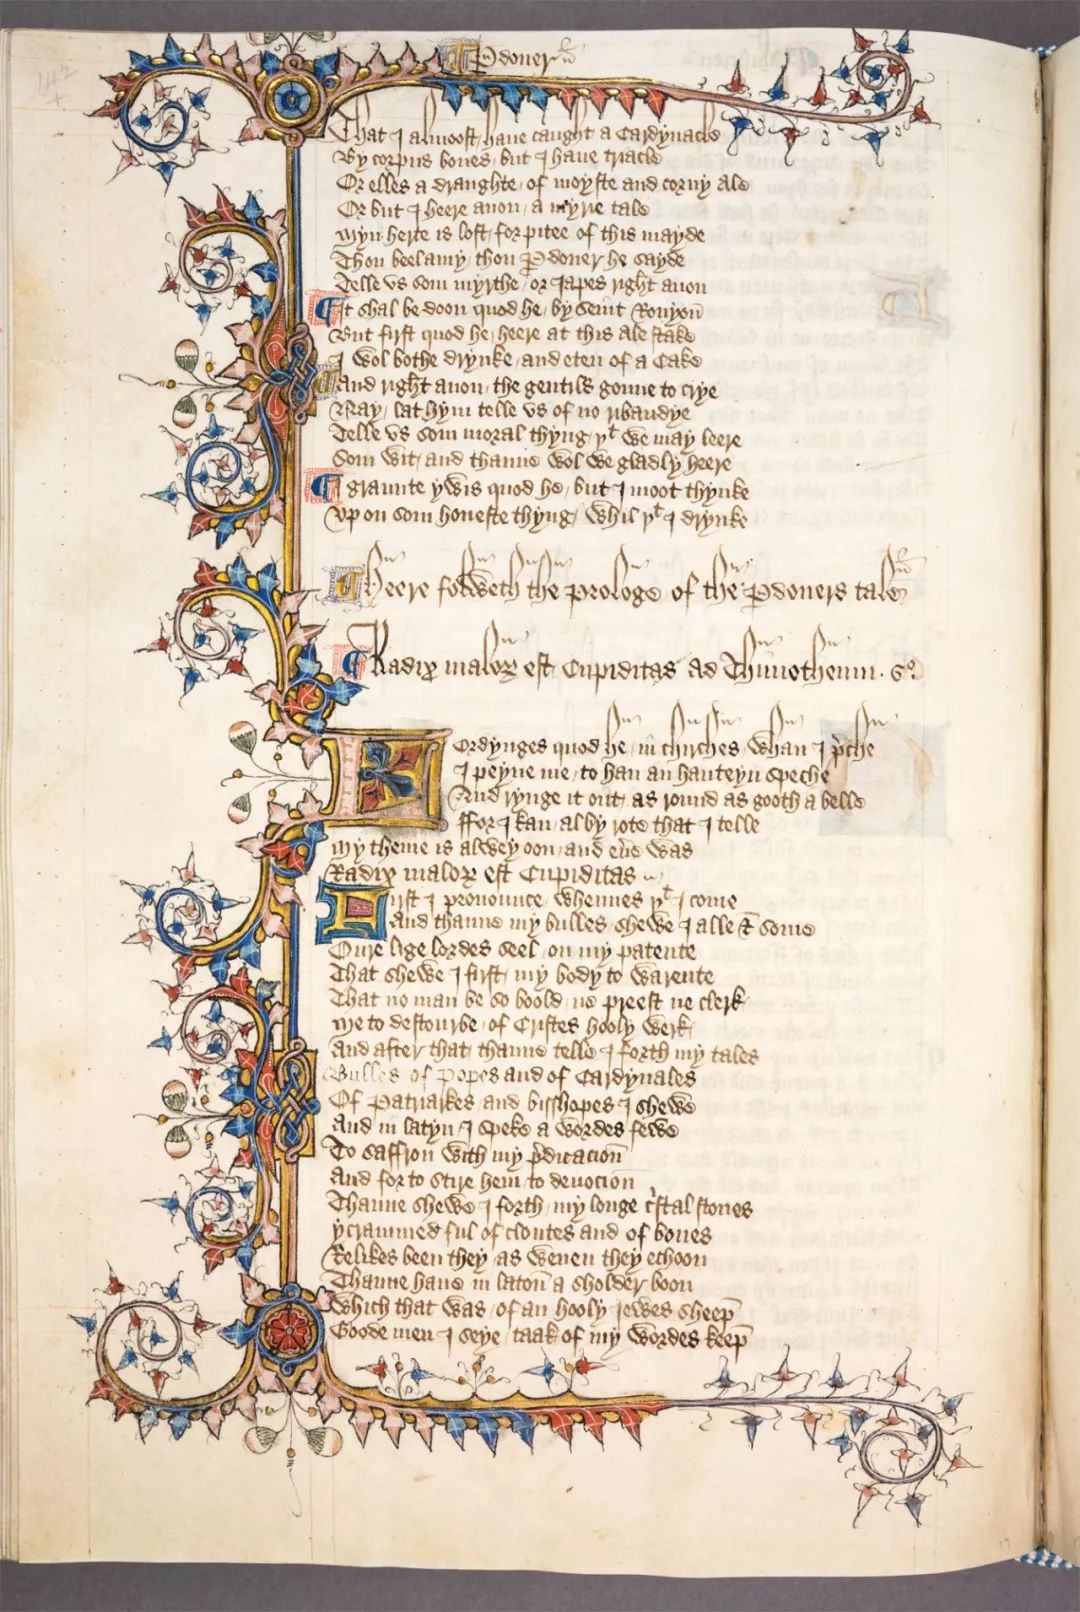 ¶ Pdoner
That I almoost, haue caught a Cardynacle
By corpus bones, but I haue triacle
Or elles a draughte, of moyste and corny Ale
Or but I heere anon, a myrie tale
Myn herte is lost, for pitee of this mayde
Thou beelamy, thou Pdoner he sayde
Telle vs som myrthe, or Iapes right anon
¶ It shal be doon quod he, by Seint Ronyon
But first quod he, heere at this Ale stake
I wol bothe drynke, and eten of a Cake
¶ And right anon, the gentils gonne to crye
Nay, lat hym telle vs of no ribaudye
Telle vs som moral thyng, yt we may leere
Som wit, and thanne wol we gladly heere
¶ I graunte ywis quod he, but I moot thynke
Vp on som honeste thyng, whil yt I drynke
¶ Heere folweth the prologe of the Pdoners tale
¶ Radix malorꝝ est Cupiditas Ad Thimotheum · 6o
Lordynges quod he, in chirches, whan I pche
I peyne me, to han an hauteyn speche
And rynge it out, as round as gooth a belle
ffor I kan, al by rote that I telle
My theme is alwey oon, and eue was
Radix malorꝝ est Cupiditas
First I pronounce, whennes yt I come
And thanne my bulles, shewe I alle & some
Oure lige lordes seel, on my patente
That shewe I first, my body to warente
That no man be so boold, ne preest ne clerk
Me to destourbe, of Cristes hooly werk
And after that, thanne telle I forth my tales
Bulles of Popes and of Cardynales
Of Patriarkes, and bisshopes I shewe
And in latyn, I speke a wordes fewe
To saffron with my pdicacion
And for to stire hem, to deuocion
Thanne shewe I forth, my longe cstal stones
ycrammed ful of cloutes and of bones
Relikes been they, as wenen they echoon
Thanne haue in laton a sholder boon
Which that was, of an hooly Iewes sheep
Goode men I seye, taak of my wordes keep